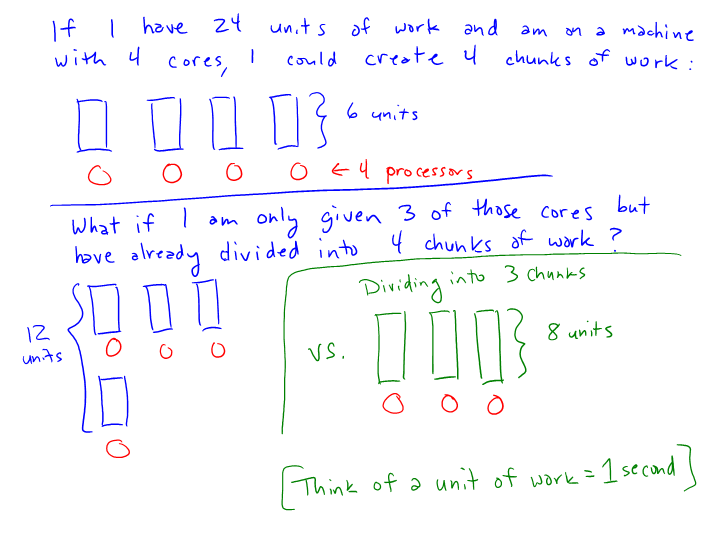 If I have 24 units of work and am on a machine
with 4 cores, I could create 4 chunks of work:
6 units
← 4 processors
What if I am only given 3 of those cores but
have already divided into 4 chunks of work?
12
units
vs.
Dividing into 3 chunks
8 units
[Think of a unit of work = 1 second]